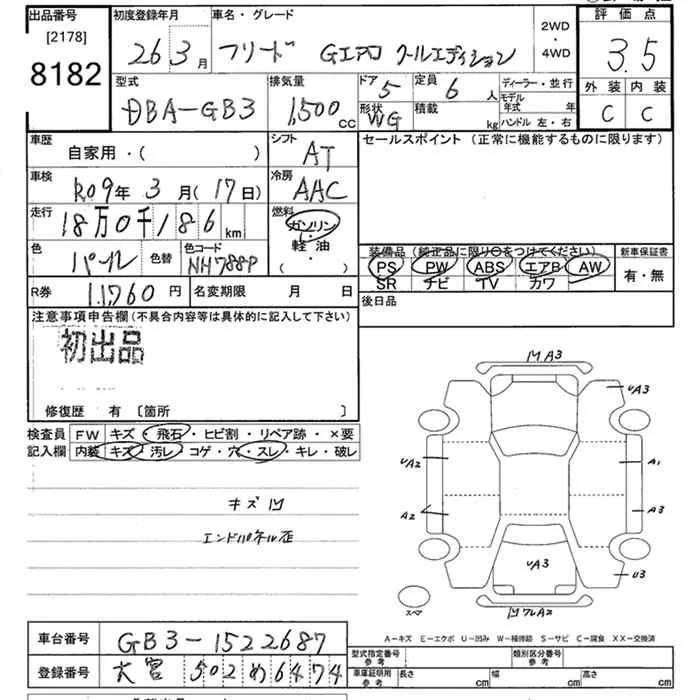 出品番号 初度登録年月 車名・グレード 2WD・4WD 評価点
[2178]
8182
26 3月 フリード Gエアロ クールエディション 3.5
型式 排気量 ドア 5 定員 6人 ディーラー・並行 外装 内装
DBA-GB3 1,500cc 形状 WG 積載 kg モデル年式 年 ハンドル 左・右 C C
車歴 シフト セールスポイント (正常に機能するものに限ります)
自家用・( ) AT
車検 R09年 3月(17日) 冷房 AAC
走行 18万0千186km 燃料 ガソリン・軽油・( )
色 パール 色替 色コード NH788P
装備品(純正品に限り○をつけてください) 新車保証書
PS PW ABS エアB AW 有・無
SR ナビ TV カワ
R券 11,760円 名変期限 月 日 後日品
注意事項申告欄(不具合内容等は具体的に記入して下さい)
初出品
修復歴 有 〔箇所 〕
検査員 FW キズ・飛石・ヒビ割・リペア跡・×要
記入欄 内装 キズ・汚レ・コゲ・穴・スレ・キレ・破レ
キズ凹
エンドパネル歪
凹A3
UA3
UA2
A1
A2
A3
UA3
U3
スペア
A-キズ E-エクボ U-凹み W-補修跡 S-サビ C-腐食 XX-交換済
車台番号 GB3-1522687
登録番号 大宮 502 め 6474
型式指定番号 参考 類別区分番号 参考
車庫証明用 参考 長さ cm 幅 cm 高さ cm